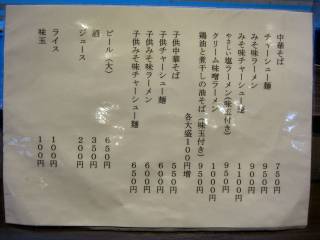 中華そば 750円
チャーシュー麺 950円
みそ味ラーメン 900円
みそ味チャーシュー麺 1100円
やさしい塩ラーメン(味玉付き) 950円
クリーム味噌ラーメン 1000円
鶏油と煮干しの油そば(味玉付き) 950円
各大盛100円増
子供中華そば 550円
子供チャーシュー麺 600円
子供みそ味ラーメン 600円
子供みそ味チャーシュー麺 650円
ビール(大) 650円
酒 350円
ジュース 200円
ライス 100円
味玉 100円